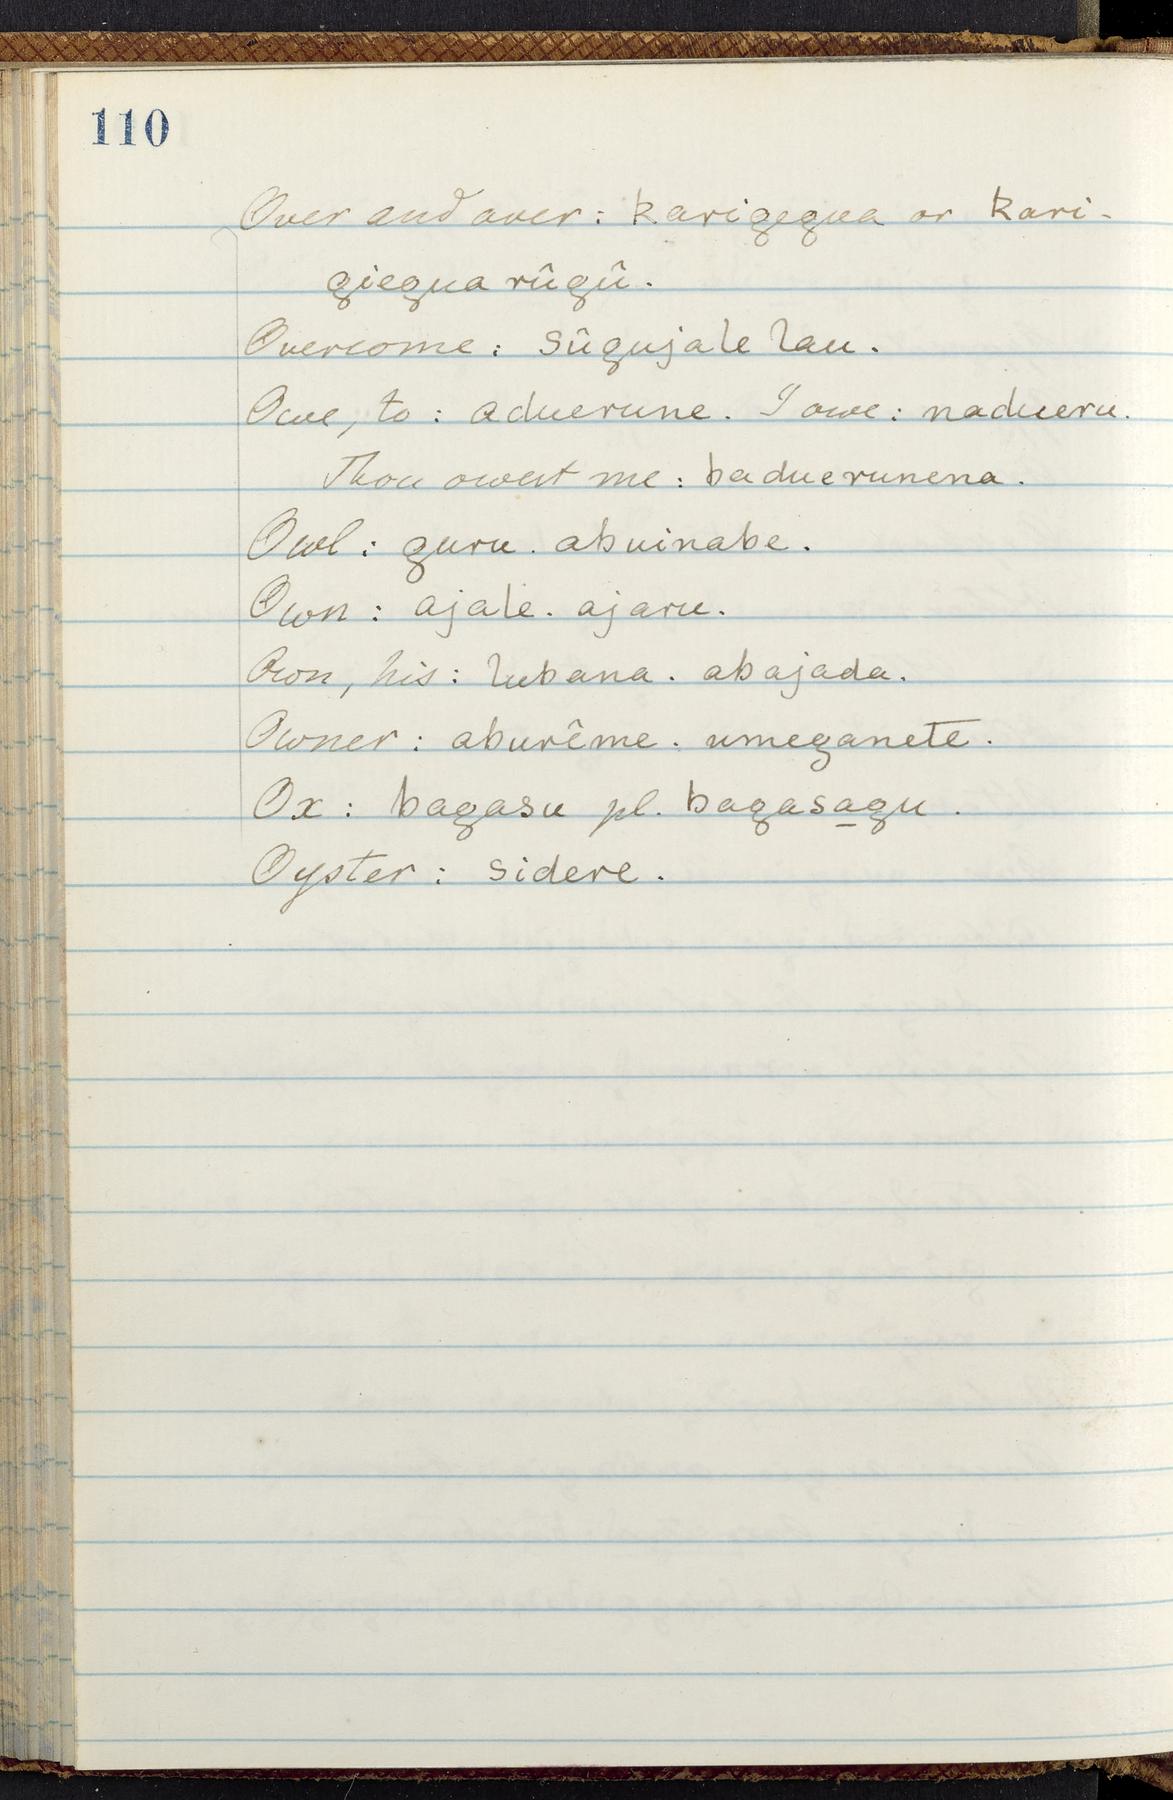 110
Over and over: karigegua or kari-
giegua rûgû.
Overcome: sûgujale lau.
Owe, to: aduerune. I owe: nadueru.
Thou owest me: baduerunena.
Owl: guru. abuinabe.
Own: ajale. ajaru.
Own, his: lubana. abajada.
Owner: aburême. umeganete.
Ox: bagasu pl. bagasagu.
Oyster: sidere.